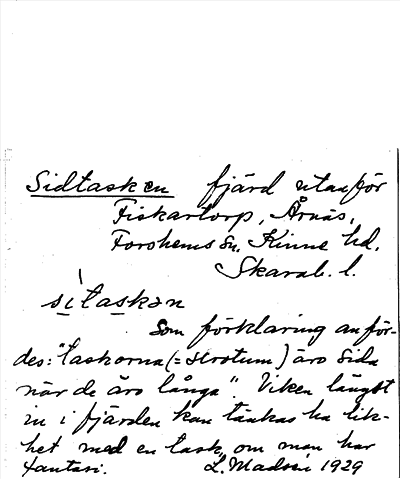 Sidtasken fjärd utanför
Fiskartorp, Årnäs,
Forshems sn. Kinne hd.
Skarab. l.
sìtaskən
Som förklaring anför-
des: "taskorna (= skrotum) äro sida
när de äro långa". Viken längst
in i fjärden kan tänkas ha lik-
het med en task, om man har
fantasi. L. Madsén 1929